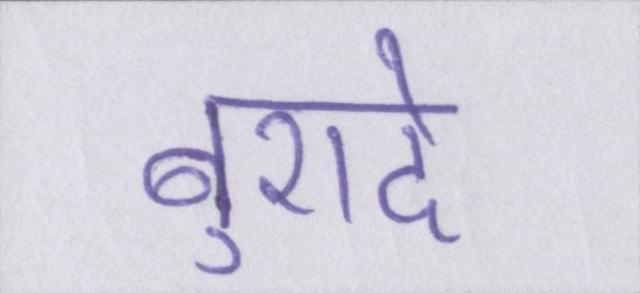 बुरादे